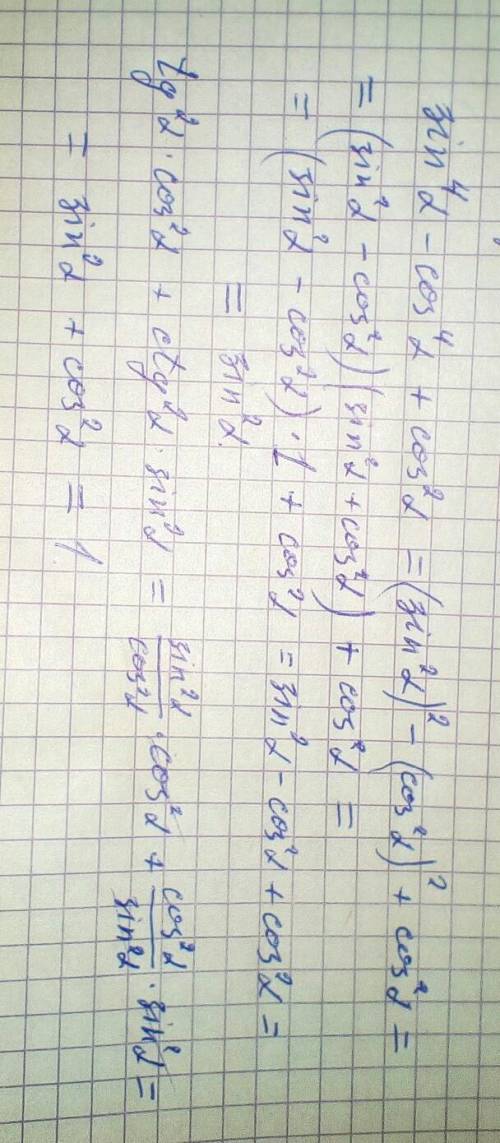 sin⁴α - cos⁴α + cos²α = (sin²α)² - (cos²α)² + cos²α =
= (sin²α - cos²α)(sin²α + cos²α) + cos²α =
= (sin²α - cos²α) · 1 + cos²α = sin²α - cos²α + cos²α =
= sin²α.
tg²α · cos²α + ctg²α · sin²α = sin²α/cos²α · cos²α + cos²α/sin²α · sin²α =
= sin²α + cos²α = 1.